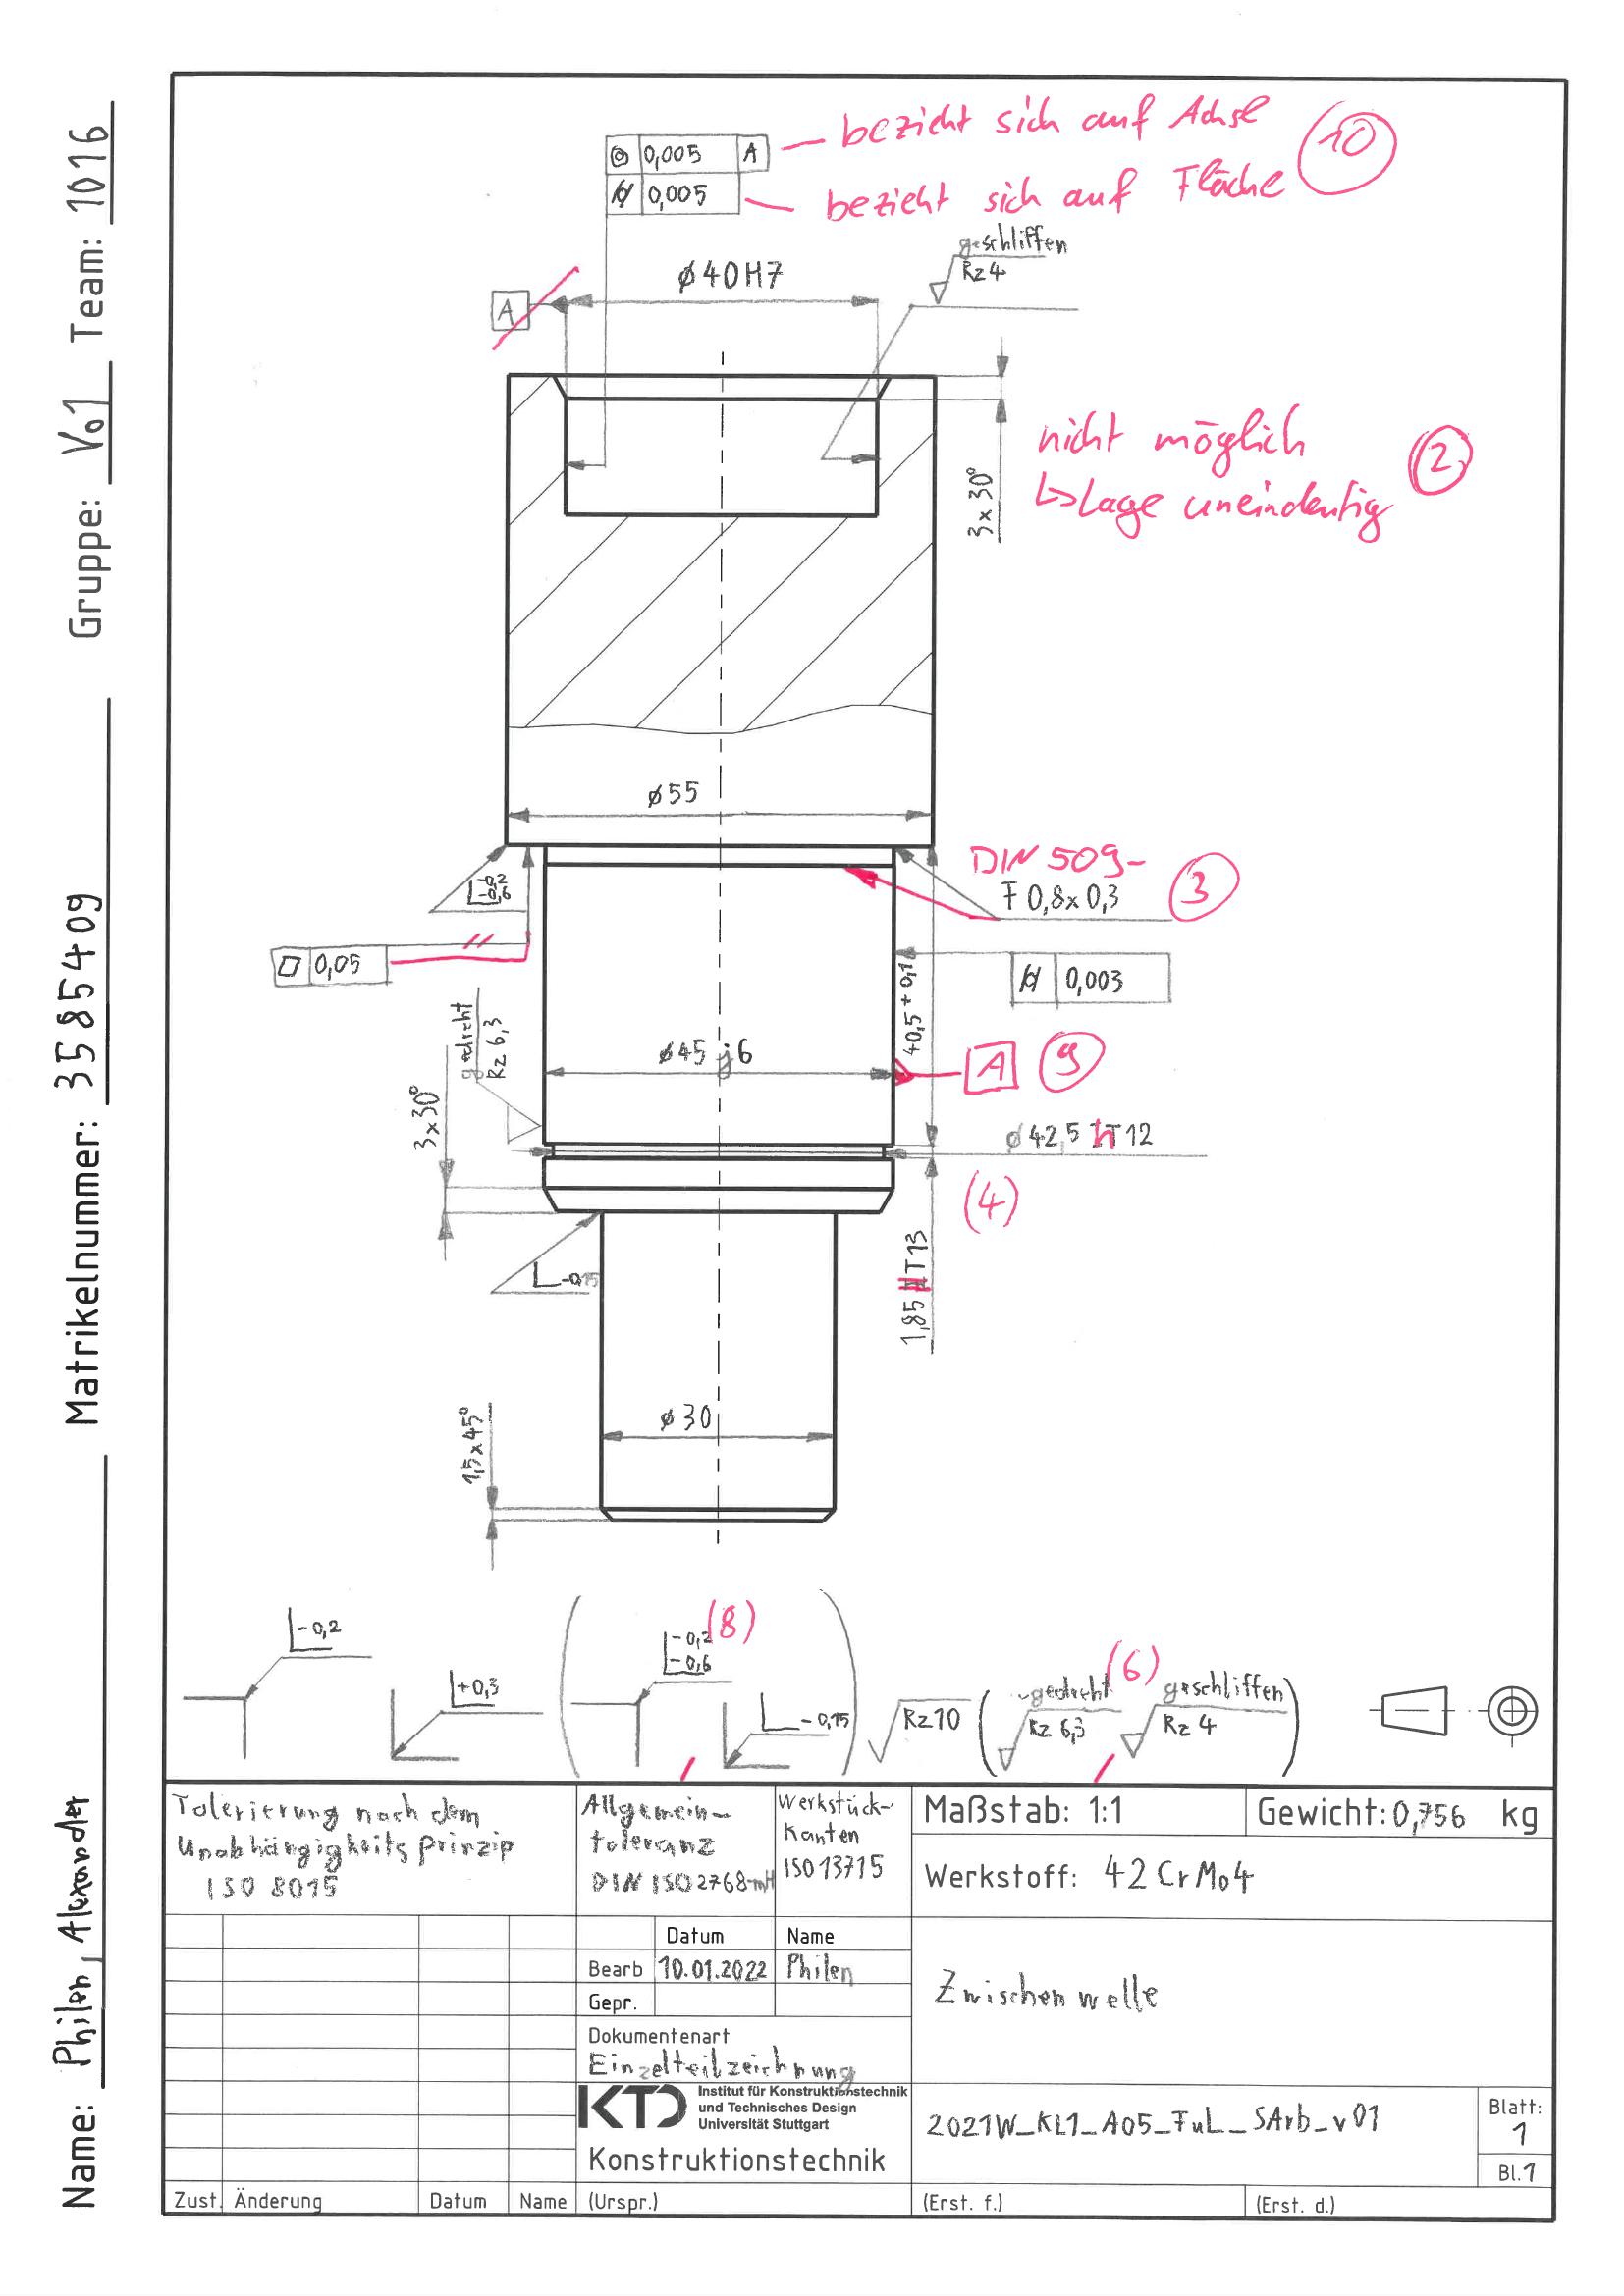 Name: Philen, Alexander Matrikelnummer: 3585409 Gruppe: Vo1 Team: 1016
◎ 0,005 A
⌭ 0,005
bezieht sich auf Achse
bezieht sich auf Fläche
10
A
⌀40H7
geschliffen
Rz 4
3x30°
nicht möglich
↳ Lage uneindeutig
2
⌀55
-0,2
-0,6
DIN 509-
F 0,8x0,3
3
⏥ 0,05
⌭ 0,003
gedreht
Rz 6,3
40,5+0,1
⌀45 j6
A
9
3x30°
⌀42,5 hT12
(4)
-0,15
1,85 HT13
⌀30
1,5x45°
-0,2
+0,3
(8)
-0,2
-0,6
-0,15
Rz10
(6)
gedreht
Rz 6,3
geschliffen
Rz 4
Tolerierung nach dem
Unabhängigkeitsprinzip
ISO 8015
Allgemein-
toleranz
DIN ISO2768-mH
Werkstück-
kanten
ISO13715
Maßstab: 1:1
Gewicht: 0,756 kg
Werkstoff: 42CrMo4
Datum Name
Bearb 10.01.2022 Philen
Gepr.
Zwischenwelle
Dokumentenart
Einzelteilzeichnung
KTD
Institut für Konstruktionstechnik
und Technisches Design
Universität Stuttgart
Konstruktionstechnik
2021W_KL1_A05_FuL_SArb_v01
Blatt:
1
Bl.1
Zust. Änderung Datum Name (Urspr.) (Erst. f.) (Erst. d.)